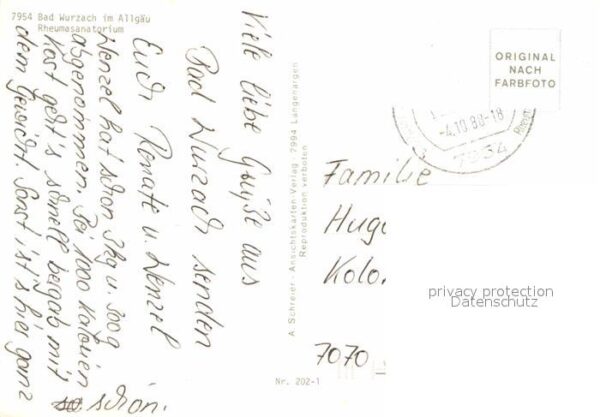 7954 Bad Wurzach im Allgäu
Rheumasanatorium
Viele liebe Grüße aus
Bad Wurzach senden
Euch Renate u. Wenzel
Wenzel hat schon 3kg u. 300g
abgenommen. Bei 1000 Kalorien
Kost geht's schnell bergab mit
dem Gewicht. Sonst ist's hier ganz
schön.
A. Schreier · Ansichtskarten-Verlag · 7994 Langenargen
Reproduktion verboten
Nr. 202-1
ORIGINAL
NACH
FARBFOTO
-4.10.88-18
7954
Familie
Hugo
Kolo
7070
privacy protection
Datenschutz